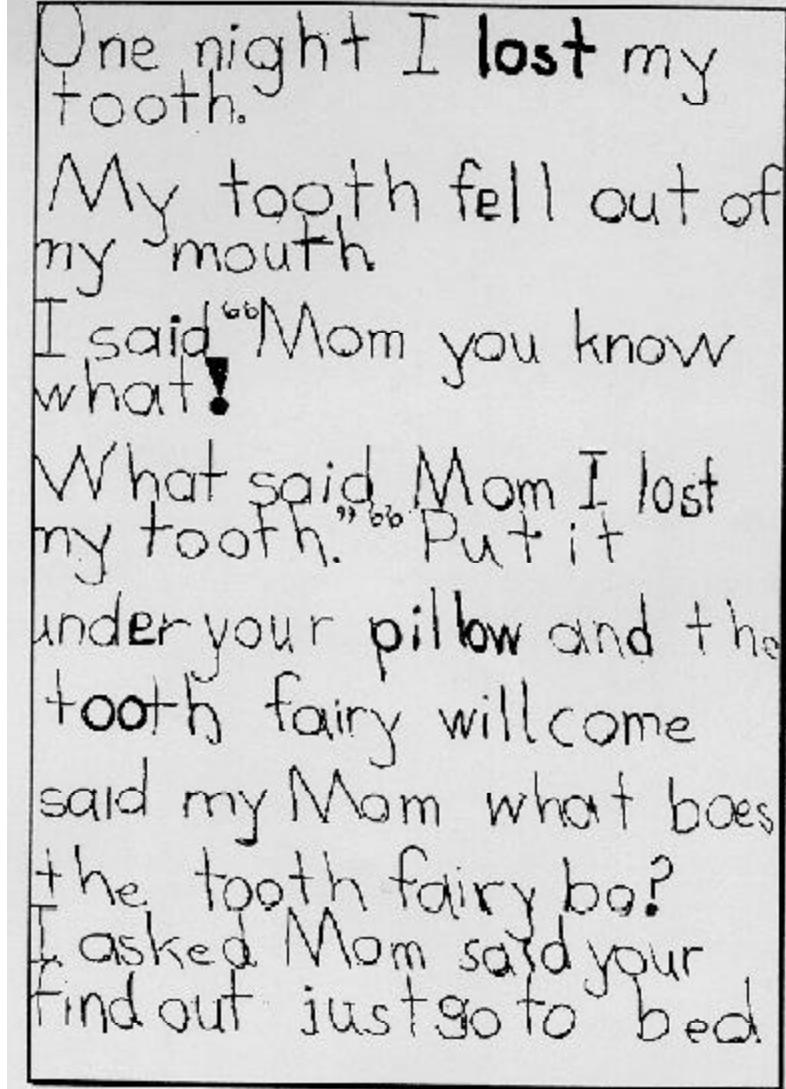 One night I lost my
tooth.
My tooth fell out of
my mouth.
I said “Mom you know
what!
What said Mom I lost
my tooth.” “Put it
under your pillow and the
tooth fairy will come
said my Mom what boes
the tooth fairy bo?
I asked Mom said your
find out just go to bed.